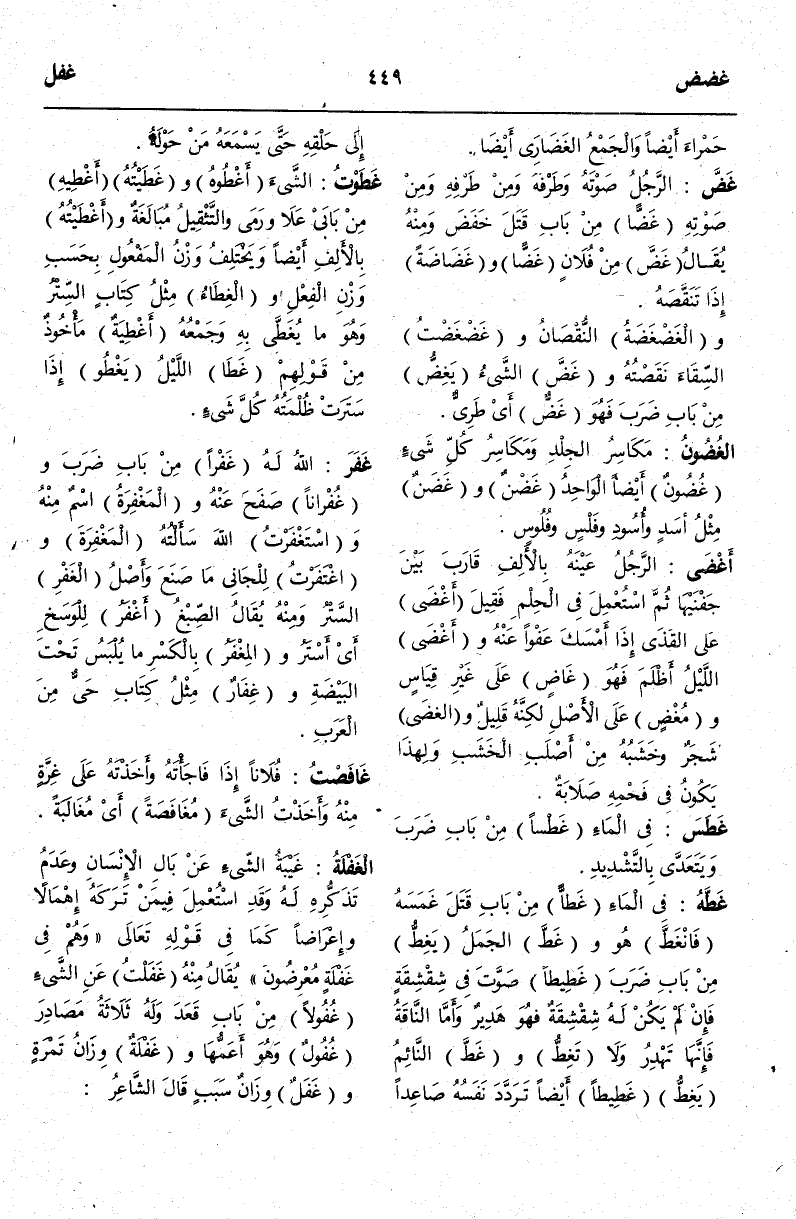 غضض
٤٤٩
غفل
حَمْرَاءَ أَيْضاً وَالْجَمْعُ الغَضَارَى أَيْضَا .
غَضَّ : الرَّجُلُ صَوْتَهُ وَطَرْفَهُ وَمِنْ طَرْفِهِ وَمِنْ
صَوْتِهِ ( غَضًّا ) مِنْ بَابِ قَتَلَ خَفَضَ وَمِنْهُ
يُقَالُ ( غَضَّ ) مِنْ فُلَانٍ ( غَضًّا ) و ( غَضَاضَةً )
إِذَا تَنَقَّصَهُ .
و ( الْغَضْغَضَةُ ) النُّقْصَانُ و ( غَضْغَضْتُ )
السِّقَاءَ نَقَصْتُهُ و ( غَضَّ ) الشَّىءُ ( يَغِضُّ )
مِنْ بَابِ ضَرَبَ فَهُوَ ( غَضٌّ ) أَىْ طَرِىٌّ .
الغُضُونُ : مَكَاسِرُ الجِلْدِ وَمَكَاسِرُ كُلِّ شَىءٍ
( غُضُونٌ ) أَيْضاً الْوَاحِدُ ( غَضْنٌ ) و ( غَضَنٌ )
مِثْلُ أَسَدٍ وأُسُودٍ وفَلْسٍ وفُلُوسٍ .
أَغْضَى : الرَّجُلُ عَيْنَهُ بِالْأَلِفِ قَارَبَ بَيْنَ
جَفْنَيْهَا ثُمَّ اسْتُعْمِلَ فِى الحِلْمِ فَقِيلَ ( أَغْضَى )
عَلَى القَذَى إِذَا أَمْسَكَ عَفْواً عَنْهُ و ( أَغْضَى )
اللَّيْلُ أَظْلَمَ فَهُوَ ( غَاضٍ ) عَلَى غَيْرِ قِيَاسٍ
و ( مُغْضٍ ) عَلَى الْأَصْلِ لكِنَّهُ قَلِيلٌ و ( الغَضَى )
شَجَرٌ وخَشَبُهُ مِنْ أَصْلَبِ الْخَشَبِ وَلِهذَا
يَكُونُ فى فَحْمِهِ صَلَابَةٌ .
غَطَسَ : فِى الْمَاءِ ( غَطْساً ) مِنْ بَابِ ضَرَبَ
وَيَتَعَدَّى بِالتَّشْدِيدِ .
غَطَّهُ : فِى الْمَاءِ ( غَطًّا ) مِنْ بَابِ قَتَلَ غَمَسَهُ
( فَانْغَطَّ ) هُو و ( غَطَّ ) الجَمَلُ ( يَغِطُّ )
مِنْ بَابِ ضَرَبَ ( غَطِيطاً ) صَوَّتَ فِى شِقْشِقَةٍ
فَإِنْ لَمْ يَكُنْ لَهُ شِقْشِقَةٌ فَهُوَ هَدِيرٌ وَأَمَّا النَّاقَةُ
فَإِنَّهَا تَهْدِرُ وَلَا ( تَغِطُّ ) و ( غَطَّ ) النَّائِمُ
( يَغِطُّ ) ( غَطِيطاً ) أَيْضاً تَرَدَّدَ نَفَسُهُ صَاعِداً
إِلَى حَلْقِهِ حَتَّى يَسْمَعَهُ مَنْ حَوْلَهُ .
غَطَوْتُ : الشَّىءَ ( أَغْطُوهُ ) و ( غَطَيْتُهُ ) ( أَغْطِيهِ )
مِنْ بَابَىْ عَلَا ورَمَى والتَّثْقِيلُ مُبَالَغَةٌ و ( أَغْطَيْتُهُ )
بِالْأَلِفِ أَيْضاً وَيَخْتَلِفُ وَزْنُ الْمَفْعُولِ بِحَسَبِ
وَزْنِ الْفِعْلِ و ( الْغِطَاءُ ) مِثْلُ كِتَابٍ السِّتْرُ
وَهُوَ ما يُغَطَّى بِهِ وَجَمْعُهُ ( أَغْطِيَةٌ ) مَأْخُوذٌ
مِنْ قَوْلِهِمْ ( غَطَا ) اللَّيْلُ ( يَغْطُو ) إِذَا
سَتَرَتْ ظُلْمَتُهُ كُلَّ شَىءٍ .
غَفَرَ : اللهُ لَهُ ( غَفْراً ) مِنْ بَابِ ضَرَبَ و
( غُفْرَاناً ) صَفَحَ عَنْهُ و ( الْمَغْفِرَةُ ) اسْمٌ مِنْهُ
وَ ( اسْتَغْفَرْتُ ) اللهَ سَأَلْتُهُ ( الْمَغْفِرَةَ ) و
( اغْتَفَرْتُ ) لِلْجَانِى مَا صَنَعَ وَأَصْلُ ( الْغَفْرِ )
السَّتْرُ وَمِنْهُ يُقَالُ الصِّبْغُ ( أَغْفَرُ ) لِلْوَسَخِ
أَىْ أَسْتَرُ و ( المِغْفَرُ ) بِالْكَسْرِ ما يُلْبَسُ تَحْتَ
البَيْضَةِ و ( غِفَارٌ ) مِثْلُ كِتَابٍ حَىٌّ مِنَ
الْعَرَبِ .
غَافَصْتُ : فُلَاناً إِذَا فَاجَأْتَهُ وأَخَذْتَهُ عَلَى غِرَّةٍ
مِنْهُ وَأَخَذْتُ الشَّىءَ ( مُغَافَصَةً ) أَىْ مُغَالَبَةً .
الْغَفْلَةُ : غَيْبَةُ الشَّىءِ عَنْ بَالِ الْإِنْسَانِ وعَدَمُ
تَذَكُّرِهِ لَهُ وَقَدِ اسْتُعْمِلَ فِيمَنْ تَرَكَهُ إِهْمَالًا
وإِعْرَاضاً كَمَا فِى قَوْلِهِ تَعَالَى « وَهُمْ فِى
غَفْلَةٍ مُعْرِضُونَ » يُقَالُ مِنْهُ ( غَفَلْتُ ) عَنِ الشَّىءِ
( غُفُولًا ) مِنْ بَابِ قَعَدَ وَلَهُ ثَلَاثَةُ مَصَادِرَ
( غُفُولٌ ) وَهُوَ أَعَمُّهَا و ( غَفْلَةٌ ) وِزَانُ تَمْرَةٍ
و ( غَفَلٌ ) وِزَانُ سَبَبٍ قَالَ الشَّاعِرُ :